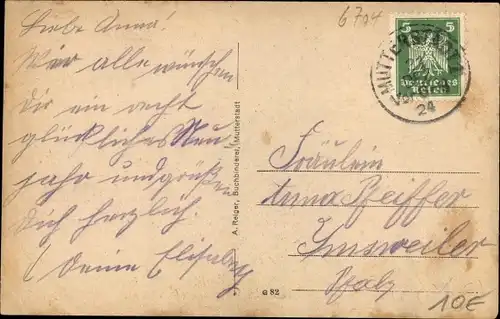 Liebe Anna!
Wir alle wünschen
dir ein recht
glückliches Neu
jahr und grüßen
dich herzlich.
Deine Elisabeth
A. Reiger, Buchbinderei, Mutterstadt
G 82
6704
5 5
Deutsches
Reich
MUTTERSTADT
24
Fräulein
Anna Pfeiffer
Imsweiler
Pfalz
10€